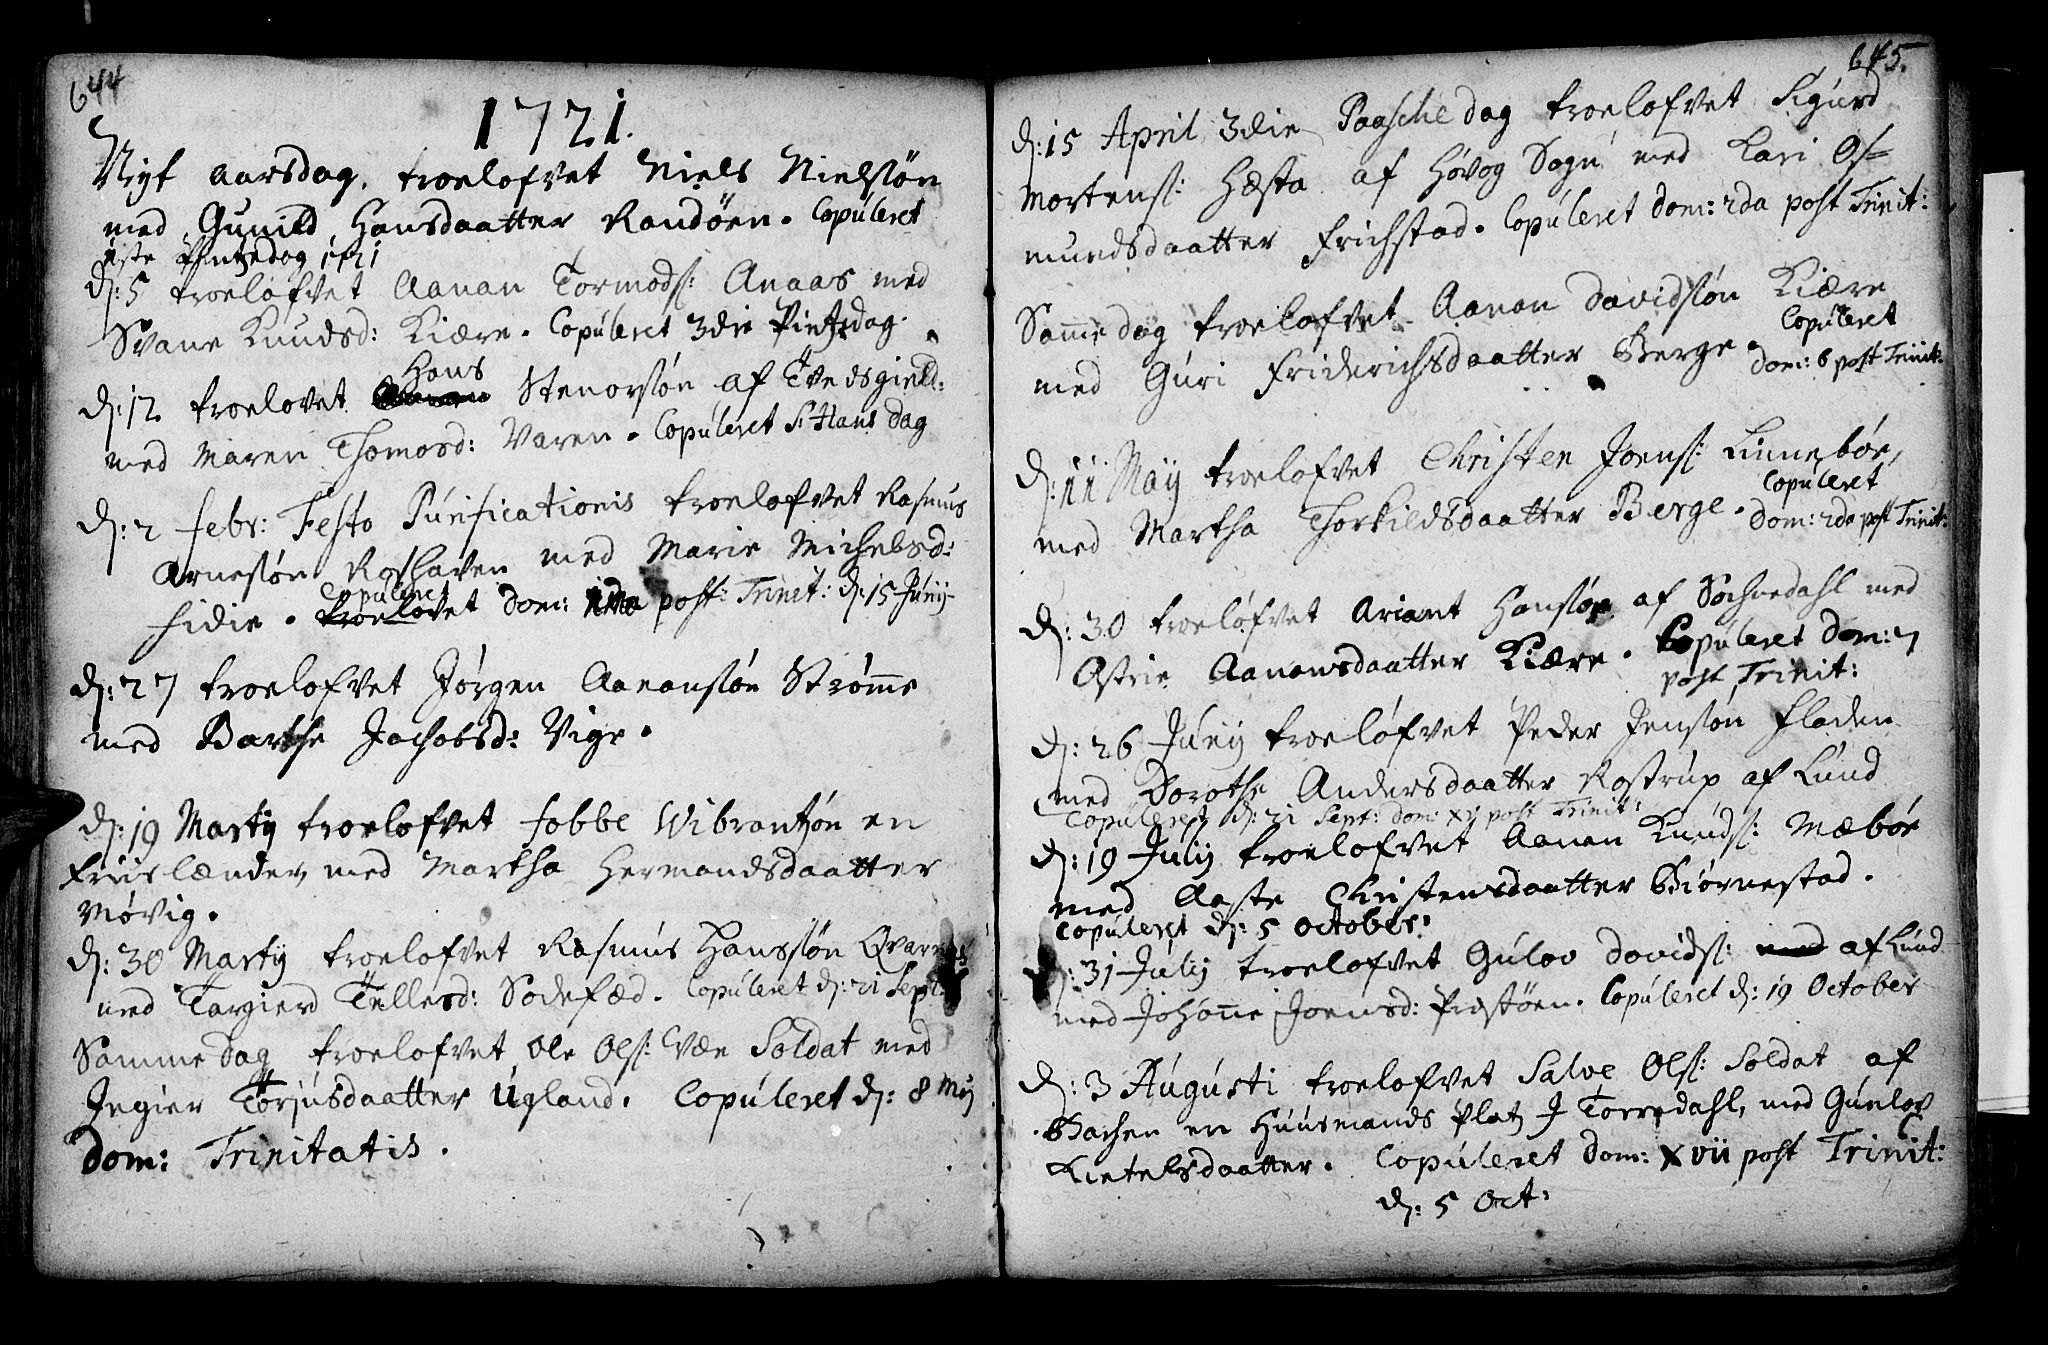 644
1721.
Nyt aarsdag, troelofvet Niels Nielsøn
med Gunild Hansdaatter Randøen. Copuleret
1ste Pintzedag 1721
d: 5 troelofvet Aanan Tormods: Anaas med
Svane Knudsd: Kiære. Copuleret 3die Pintzdag.
Hans
d: 12 troelovet Stenorsøn af Tvedsgield:
med Maren Thomasd: Varen. Copuleret S: Hans Dag
d: 2 febr: Festo Purificationis troelofvet Rasmus
Arnesøn Roshaven med Marie Michelsd:
Copuleret
Fidie. troelovet Dom: 1ma post: Trinit: d: 15 Junij
d: 27 troelofvet Jørgen Aanansøn Strømme
med Barthe Jachobsd: Vige.
d: 19 Martij troelofvet Fobbe Wibrantzøn en
Friislænder, med Martha Hermandsdaatter
Møvig.
d: 30 Martij troelofvet Rasmus Hanssøn Qvarnes
med Targierd Tellesd: Sodefæd. Copuleret d: 21 Sept:
Samme dag troelofvet Ole Ols: Væe Soldat med
Ingier Torjusdaatter Ugland. Copuleret d: 8 Mij
Dom: Trinitatis.
645.
d: 15 April 3die Paasche dag troelofvet Sigurd
Mortens: Hæsta af Høvog Sogn med Kari Os=
mundsdaatter Frichstad. Copuleret Dom: 2da post Trinit:
Same dag troelofvet Aanan Davidsøn Kiære
Copuleret
med Guri Friderichsdaatter Berge. Dom: 6 post Trinit:
d: 11 Maij troelofvet Christen Joens: Linnebøe,
Copuleret
med Martha Thorkildsdaatter Berge. Dom: 2da post Trinit:
d: 30 troelofvet Ariant Hansløn af Sochnedahl med
Ostrie Aanonsdaatter Kiære. Copuleret Dom: 7
post Trinit:
d: 26 Junij troelofvet Peder Jensøn Fladen
med Dorothe Andersdaatter Rostrup af Lund
Copuleret d: 21 Sept: Dom: XV post Trinit:
d: 19 Julij troelofvet Aanan Knuds: Mæbøe
med Aaste Christensdaatter Biørnestad.
Copuleret d: 5 October.
d: 31 Julij troelofvet Gulov Davids: med af Lund
med Johanne Joensd: Prestøen. Copuleret d: 19 October
d: 3 Augusti troelofvet Salve Ols: Soldat af
Bachen en Huusmands Platz J Torredahl, med Gunlov
Kietelsdaatter. Copuleret Dom: XVII post Trinit:
d: 5 Oct: